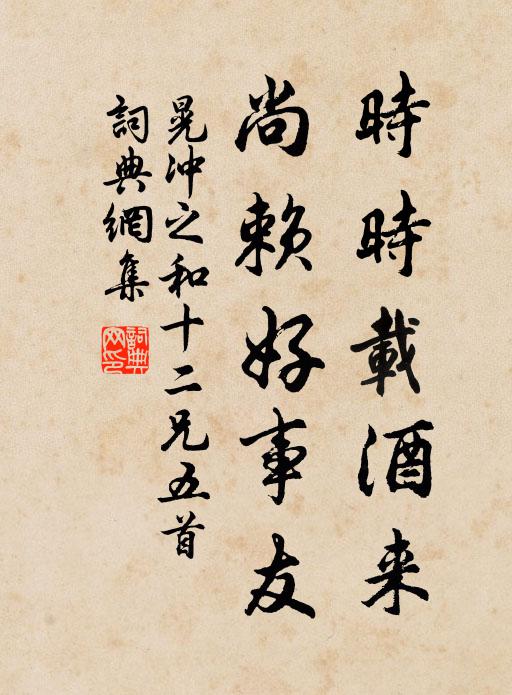 時時載酒来
尚赖好事友
晁冲之和十二兄五首
詞典網集
詞典网印